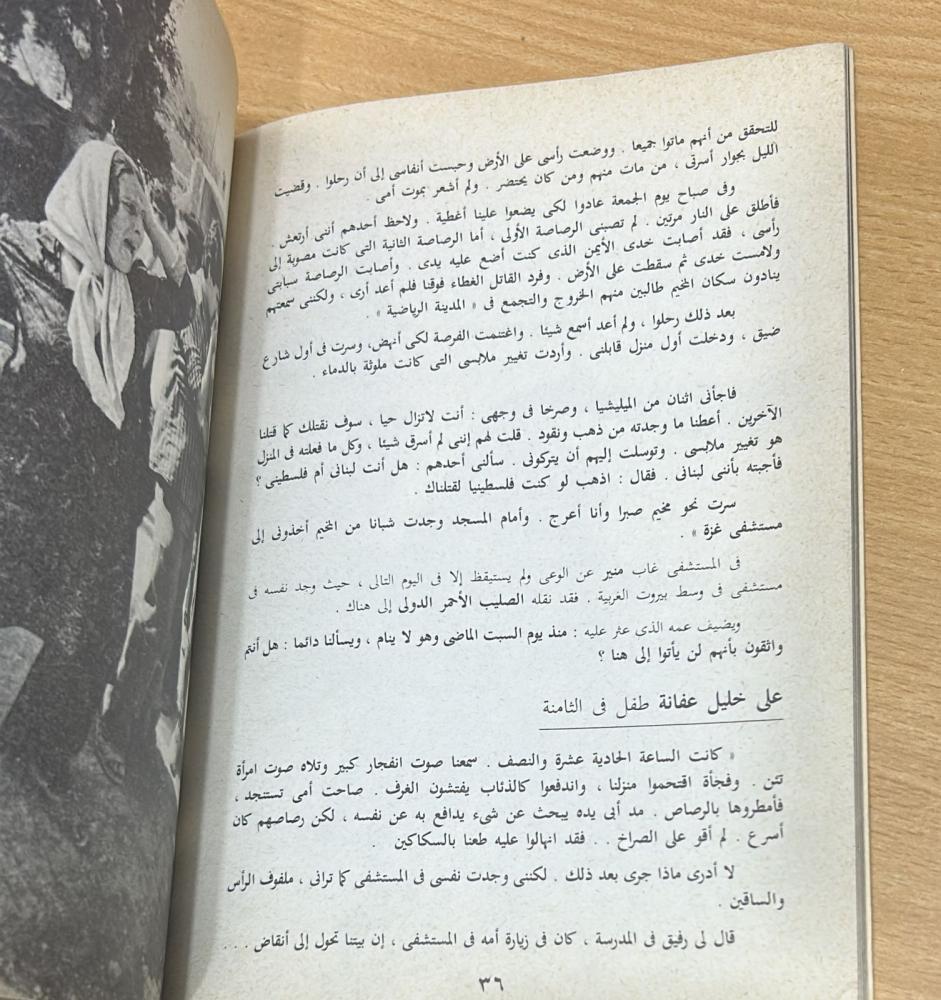 للتحقق من أنهم ماتوا جميعا . ووضعت رأسى على الأرض وحبست أنفاسى إلى أن رحلوا . وقضيت
الليل بجوار أسرتى ، من مات منهم ومن كان يحتضر . ولم أشعر بموت أمى .
وفى صباح يوم الجمعة عادوا لكى يضعوا علينا أغطية . ولاحظ أحدهم أننى أرتعش .
فأطلق على النار مرتين . لم تصبنى الرصاصة الأولى ، أما الرصاصة الثانية التى كانت مصوبة إلى
رأسى ، فقد أصابت خدى الأيمن الذى كنت أضع عليه يدى . وأصابت الرصاصة سبابتى
ولامست خدى ثم سقطت على الأرض . وفرد القاتل الغطاء فوقنا فلم أعد أرى ، ولكننى سمعتهم
ينادون سكان المخيم طالبين منهم الخروج والتجمع فى « المدينة الرياضية » .
بعد ذلك رحلوا ، ولم أعد أسمع شيئا . واغتنمت الفرصة لكى أنهض، وسرت فى أول شارع
ضيق ، ودخلت أول منزل قابلنى . وأردت تغيير ملابسى التى كانت ملوثة بالدماء .
فاجأنى اثنان من الميليشيا ، وصرخا فى وجهى : أنت لاتزال حيا ، سوف نقتلك كما قتلنا
الآخرين . أعطنا ما وجدته من ذهب ونقود . قلت لهم إننى لم أسرق شيئا ، وكل ما فعلته فى المنزل
هو تغيير ملابسى . وتوسلت إليهم أن يتركونى . سألنى أحدهم : هل أنت لبنانى أم فلسطينى ؟
فأجبته بأننى لبنانى . فقال : اذهب لو كنت فلسطينيا لقتلناك .
سرت نحو مخيم صبرا وأنا أعرج . وأمام المسجد وجدت شبانا من المخيم أخذونى إلى
مستشفى غزة » .
فى المستشفى غاب منير عن الوعى ولم يستيقظ إلا فى اليوم التالى ، حيث وجد نفسه فى
مستشفى فى وسط بيروت الغربية . فقد نقله الصليب الأحمر الدولى إلى هناك .
ويضيف عمه الذى عثر عليه : منذ يوم السبت الماضى وهو لا ينام ، ويسألنا دائما : هل أنتم
واثقون بأنهم لن يأتوا إلى هنا ؟
على خليل عفانة طفل فى الثامنة
« كانت الساعة الحادية عشرة والنصف . سمعنا صوت انفجار كبير وتلاه صوت امرأة
تئن . وفجأة اقتحموا منزلنا ، واندفعوا كالذئاب يفتشون الغرف . صاحت أمى تستنجد ،
فأمطروها بالرصاص . مد أبى يده يبحث عن شىء يدافع به عن نفسه ، لكن رصاصهم كان
أسرع . لم أقو على الصراخ . . فقد انهالوا عليه طعنا بالسكاكين .
لا أدرى ماذا جرى بعد ذلك . لكننى وجدت نفسى فى المستشفى كما ترانى ، ملفوف الرأس
والساقين .
قال لى رفيق فى المدرسة ، كان فى زيارة أمه فى المستشفى ، إن بيتنا تحول إلى أنقاض . . .
٣٦